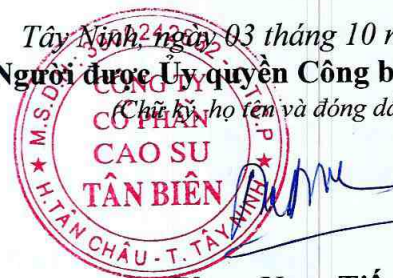 Tây Ninh, ngày 03 tháng 10 n
Người được Ủy quyền Công b
(Chữ ký, họ tên và đóng dấ
M.S.D.N: 3900242832 - C.T.C.P
CÔNG TY
CỔ PHẦN
CAO SU
TÂN BIÊN
H.TÂN CHÂU - T. TÂY NINH